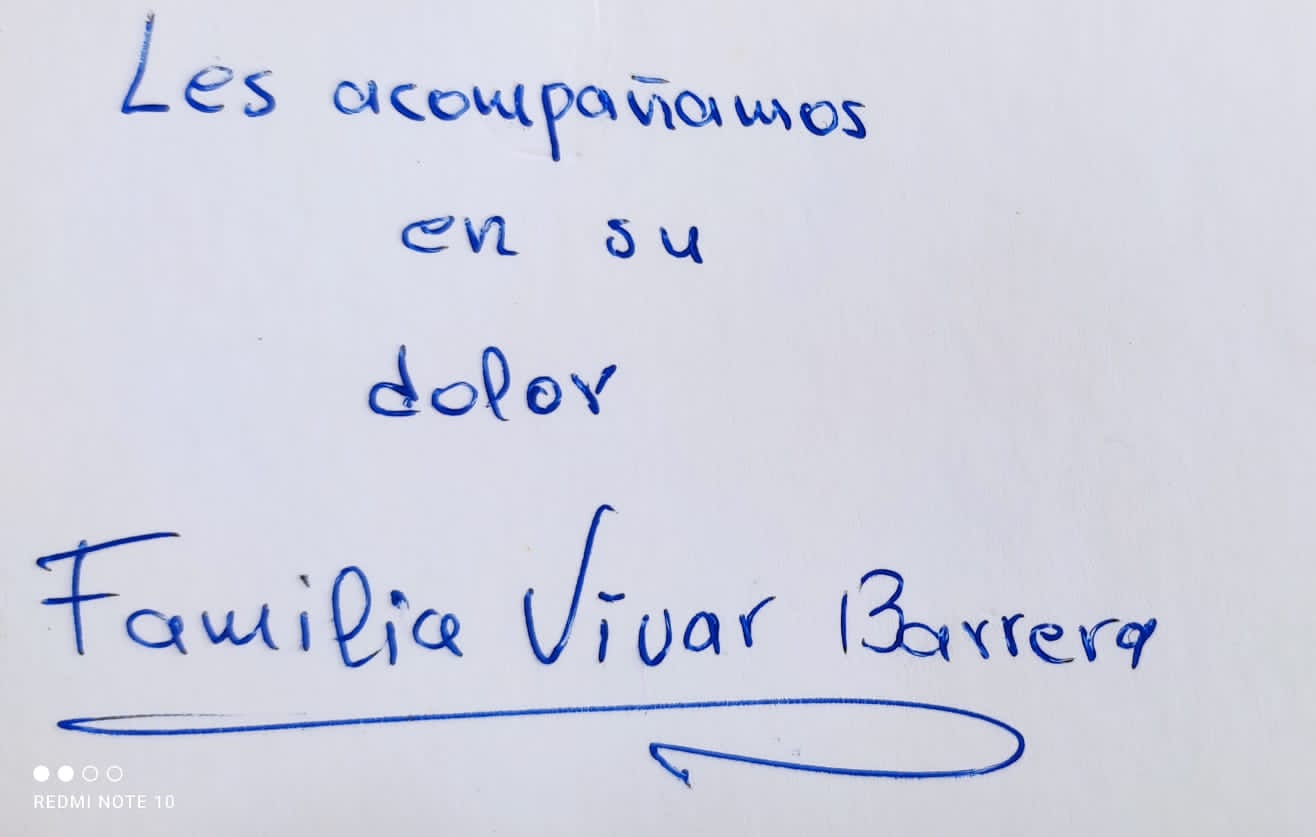 Les acompañamos
en su
dolor
Familia Vivar Barrera
REDMI NOTE 10